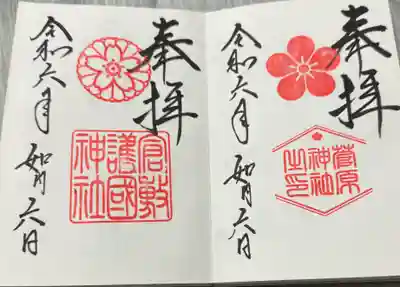 奉拝
菅原
神社
之印
令和六年 如月六日
奉拝
倉敷
護國
神社
令和六年 如月六日